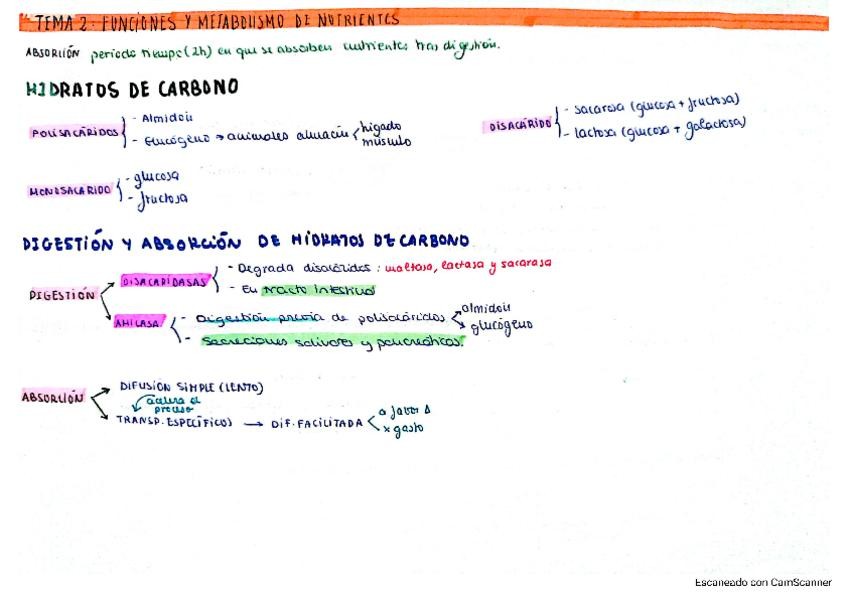 TEMA 2: FUNCIONES Y METABOLISMO DE NUTRIENTES
ABSORCIÓN periodo tiempo (2h) en que se absorben nutrientes tras digestión.
HIDRATOS DE CARBONO
POLISACÁRIDOS - Almidón
- Glucógeno → animales almacén hígado
músculo
DISACÁRIDO - sacarosa (glucosa + fructosa)
- lactosa (glucosa + galactosa)
MONOSACARIDO - glucosa
- fructosa
DIGESTIÓN Y ABSORCIÓN DE HIDRATOS DE CARBONO
DIGESTIÓN
DISACARIDASAS - Degrada disacáridos: maltosa, lactasa y sacarosa
- En tracto intestinal
AMILASA - Digestión previa de polisacáridos almidón
glucógeno
- Secreciones salivares y pancreáticas.
ABSORCIÓN
DIFUSIÓN SIMPLE (LENTO)
acelera el
proceso
TRANSP. ESPECÍFICOS → DIF. FACILITADA a favor Δ
x gasto
Escaneado con CamScanner